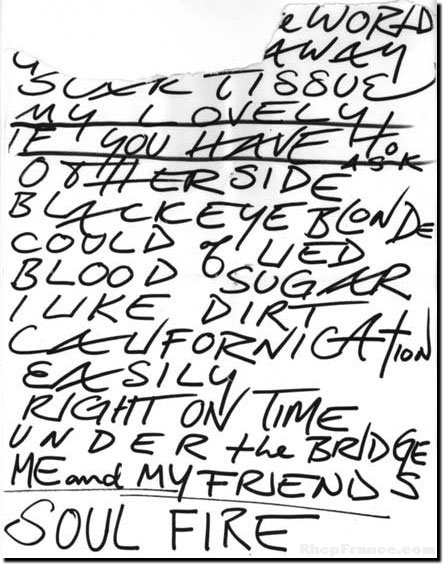 e WORLD
AWAY
SUCK TISSUE
MY LOVELY
IF YOU HAVE to
ASK
OTHERSIDE
BLACKEYE BLONDE
COULD of LIED
BLOOD SUGAR
I LIKE DIRT
CALIFORNICATION
EASILY
RIGHT ON TIME
UNDER the BRIDGE
ME and MY FRIENDS
SOUL FIRE
RhcpFrance.com